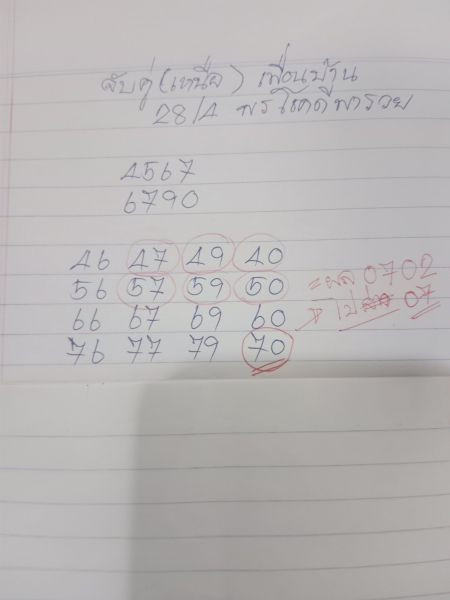 จับคู่(เหนือ) เพื่อนบ้าน
28/4 พรโชคดีพารวย
4567
6790
46 47 49 40
56 57 59 50
66 67 69 60
76 77 79 70
=ผล 0702
ไป 07